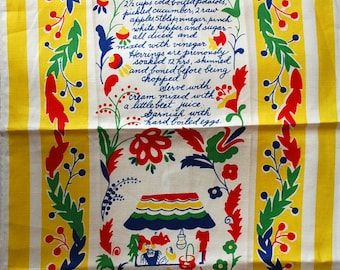 2½ cups cold boiled potatoes,
pickled cucumber, 2 raw
apples, 5 tblsp vinegar, pinch
white pepper and sugar—
all diced and
mixed with vinegar
Herrings are previously
soaked 12 hrs, skinned
and boned before being
chopped
Serve with
cream mixed with
a little beet juice.
Garnish with
hard boiled eggs.